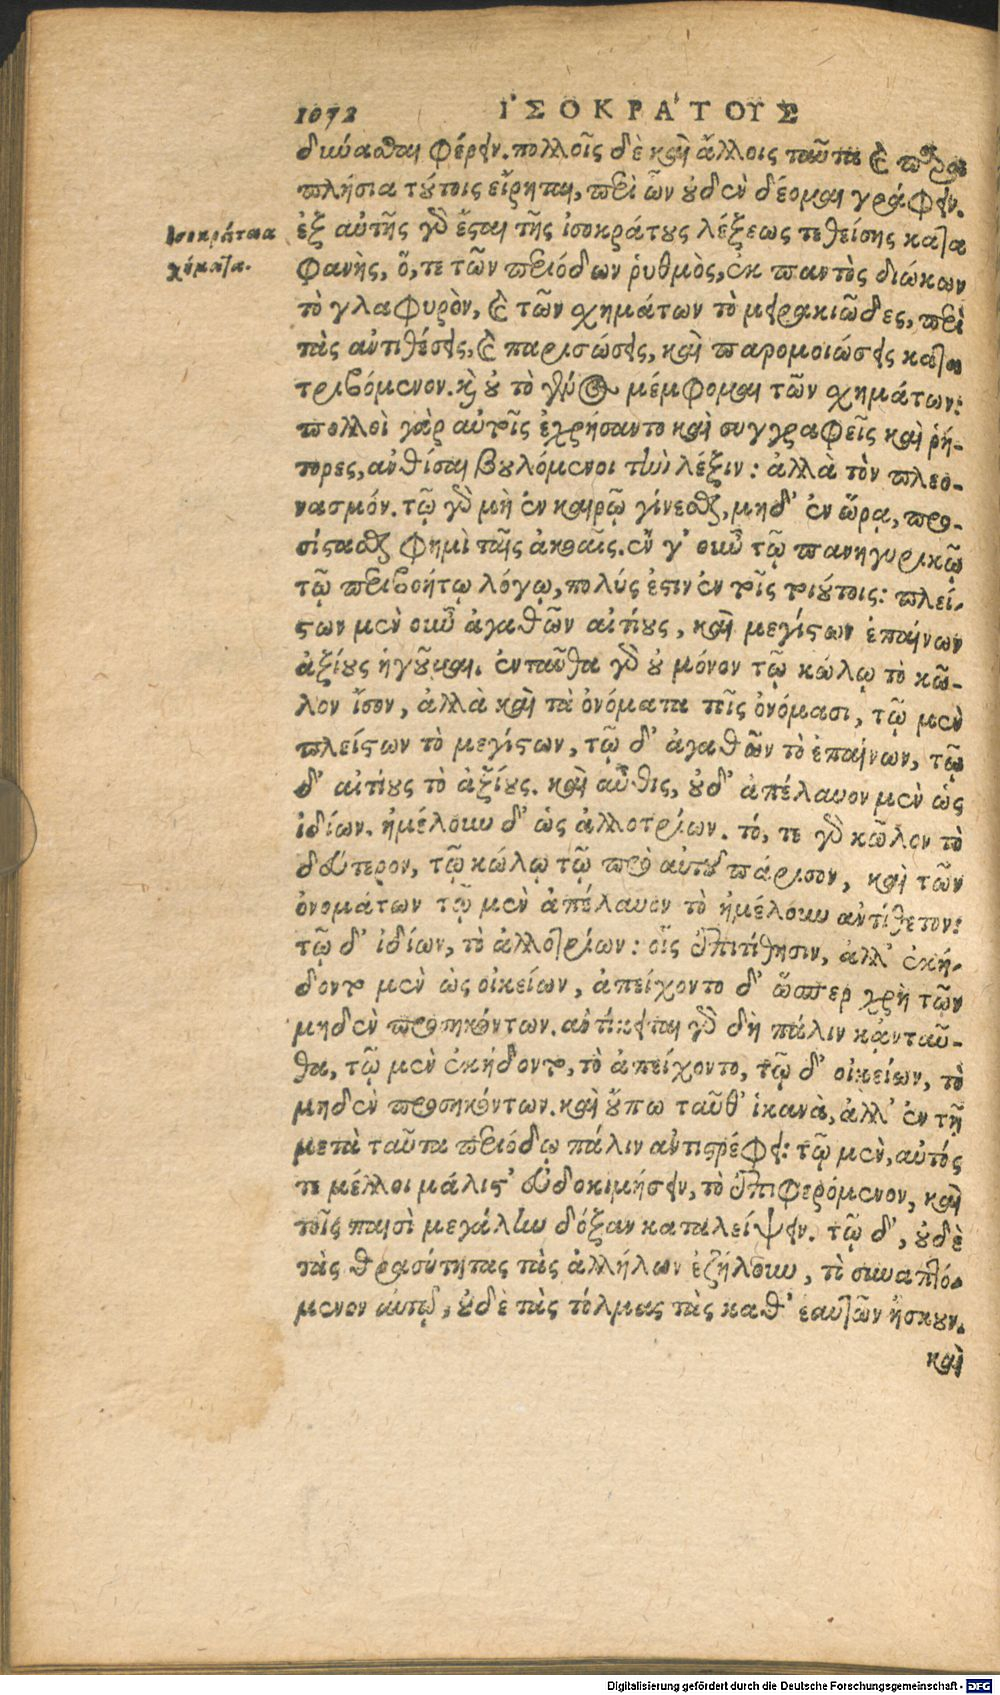 1072 ἸΣΟΚΡΆΤΟΥΣ
δύνασθαι φέρειν. πολλοῖς δὲ καὶ ἄλλοις ταῦτα καὶ παρα
πλήσια τούτοις εἴρηται, περὶ ὧν οὐδὲν δέομαι γράφειν.
Ἰσοκράτεια
χήματα.
ἐξ αὐτῆς γὰρ ἔσται τῆς ἰσοκράτους λέξεως τεθείσης κατα
φανὴς, ὅ, τε τῶν περιόδων ῥυθμὸς, ἐκ παντὸς διώκων
τὸ γλαφυρὸν, καὶ τῶν σχημάτων τὸ μειρακιῶδες, περὶ
τὰς ἀντιθέσεις, καὶ παρισώσεις, καὶ παρομοιώσεις κατα
τριβόμενον. καὶ οὐ τὸ γένος μέμφομαι τῶν σχημάτων:
πολλοὶ γὰρ αὐτοῖς ἐχρήσαντο καὶ συγγραφεῖς καὶ ῥή-
τορες, ἀνθίσαι βουλόμενοι τὴν λέξιν: ἀλλὰ τὸν πλεο-
νασμόν. τῷ γὰρ μὴ ἐν καιρῷ γίνεσθαι, μηδ' ἐν ὥρᾳ, προ-
σίστασθαι φημὶ ταῖς ἀκοαῖς. ἐν γ' οὖν τῷ πανηγυρικῷ
τῷ περιβοήτῳ λόγῳ, πολύς ἐστιν ἐν τοῖς τοιούτοις: πλεί-
στων μὲν οὖν ἀγαθῶν αἰτίους, καὶ μεγίστων ἐπαίνων
ἀξίους ἡγοῦμαι. ἐνταῦθα γὰρ οὐ μόνον τῷ κώλῳ τὸ κῶ-
λον ἴσον, ἀλλὰ καὶ τὰ ὀνόματα τοῖς ὀνόμασι, τῷ μὲν
πλείστων τὸ μεγίστων, τῷ δ' ἀγαθῶν τὸ ἐπαίνων, τῷ
δ' αἰτίους τὸ ἀξίους. καὶ αὖθις, οὐδ' ἀπέλαυον μὲν ὡς
ἰδίων. ἠμέλουν δ' ὡς ἀλλοτρίων. τό, τε γὰρ κῶλον τὸ
δεύτερον, τῷ κώλῳ τῷ πρὸ αὐτοῦ πάρισον, καὶ τῶν
ὀνομάτων τῷ μὲν ἀπέλαυον τὸ ἠμέλουν ἀντίθετον:
τῷ δ' ἰδίων, τὸ ἀλλοτρίων: οἷς ἐπιτίθησιν, ἀλλ' ἐκή-
δοντο μὲν ὡς οἰκείων, ἀπείχοντο δ' ὥσπερ χρὴ τῶν
μηδὲν προσηκόντων. ἀντίκειται γὰρ δὴ πάλιν κᾀνταῦ-
θα, τῷ μὲν ἐκήδοντο, τὸ ἀπείχοντο, τῷ δ' οἰκείων, τὸ
μηδὲν προσηκόντων. καὶ οὔπω ταῦθ' ἱκανὰ, ἀλλ' ἐν τῇ
μετὰ ταῦτα περιόδῳ πάλιν ἀντιστρέφει: τῷ μὲν, αὐτός
τε μέλλοι μάλιστ' εὐδοκιμήσειν, τὸ ἐπιφερόμενον, καὶ
τοῖς παισὶ μεγάλην δόξαν καταλείψειν. τῷ δ', οὐδὲ
τὰς θρασύτητας τὰς ἀλλήλων ἐζήλουν, τὸ συναπτό-
μενον αὐτῷ, οὐδὲ τὰς τόλμας τὰς καθ' ἑαυτῶν ἤσκουν.
καὶ
Digitalisierung gefördert durch die Deutsche Forschungsgemeinschaft - DFG